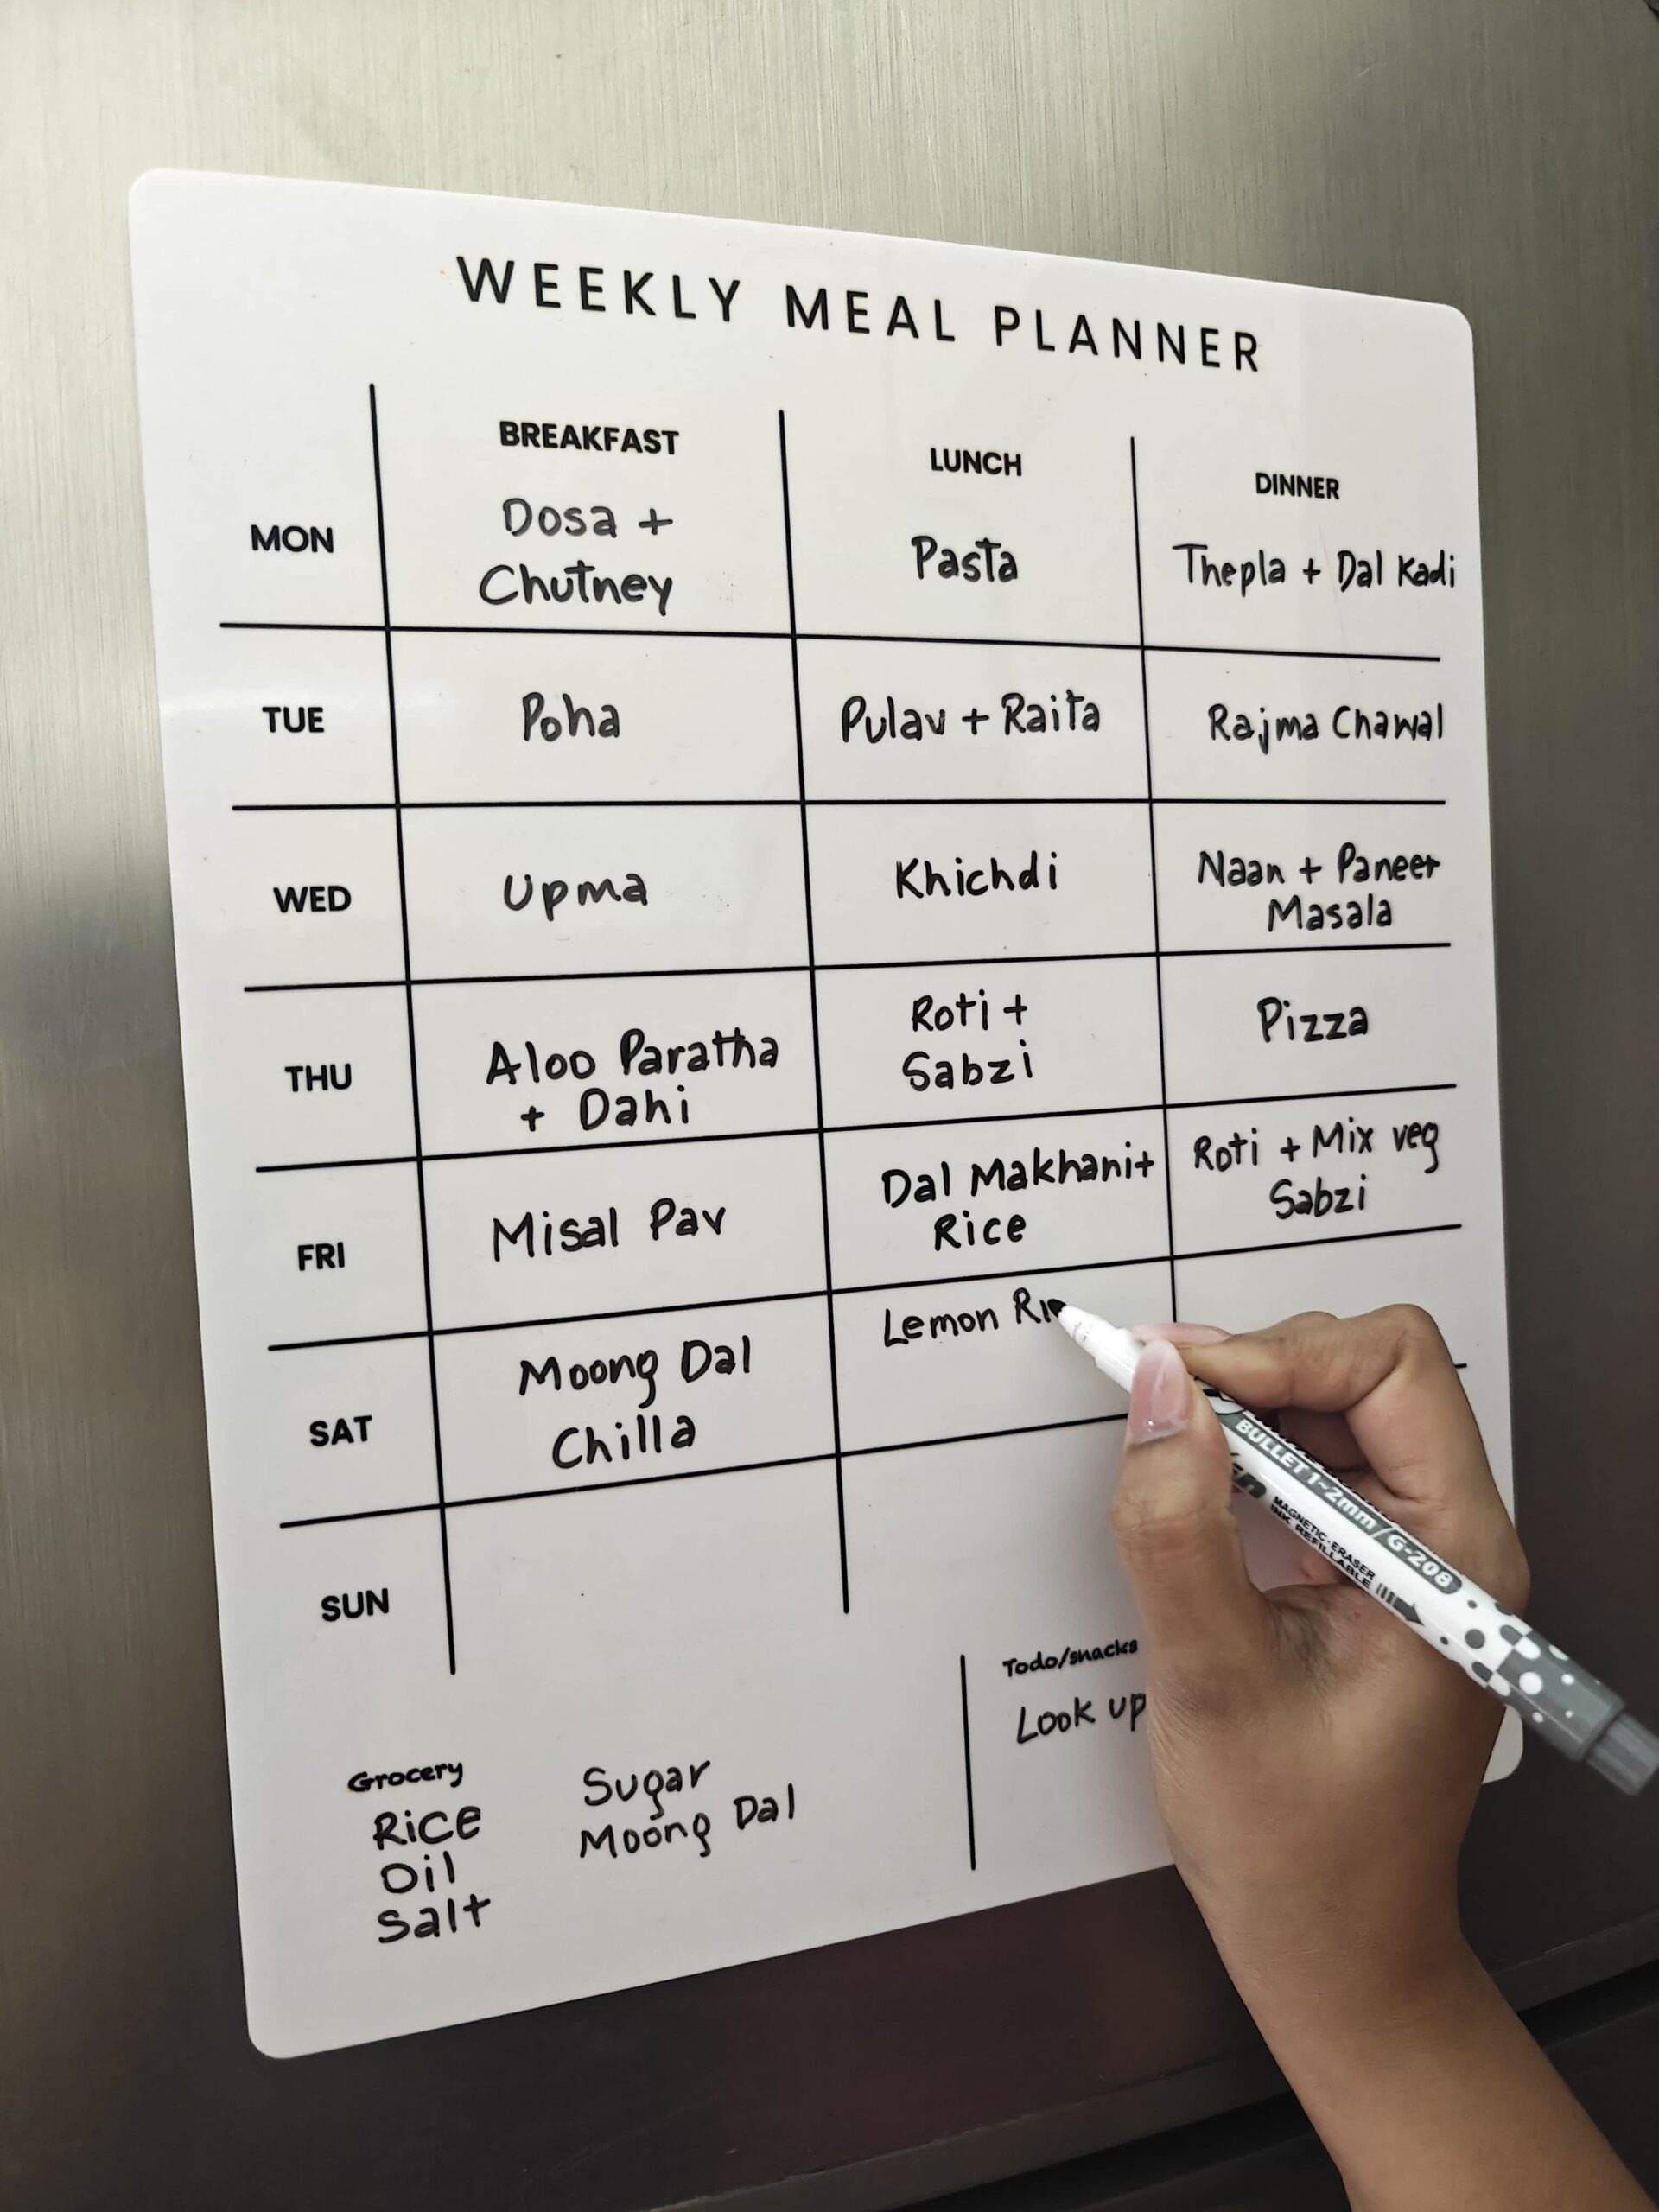 WEEKLY MEAL PLANNER
BREAKFAST
LUNCH
DINNER
MON
Dosa +
Chutney
Pasta
Thepla + Dal Kadi
TUE
Poha
Pulav + Raita
Rajma Chawal
WED
Upma
Khichdi
Naan + Paneer
Masala
THU
Aloo Paratha
+ Dahi
Roti +
Sabzi
Pizza
FRI
Misal Pav
Dal Makhani+
Rice
Roti + Mix veg
Sabzi
SAT
Moong Dal
Chilla
Lemon
SUN
Todo/snacks
Look up
Grocery
Rice
Oil
Salt
Sugar
Moong Dal
BULLET 1-2mm/G-208
MAGNETIC-ERASER
INK REFILLABLE